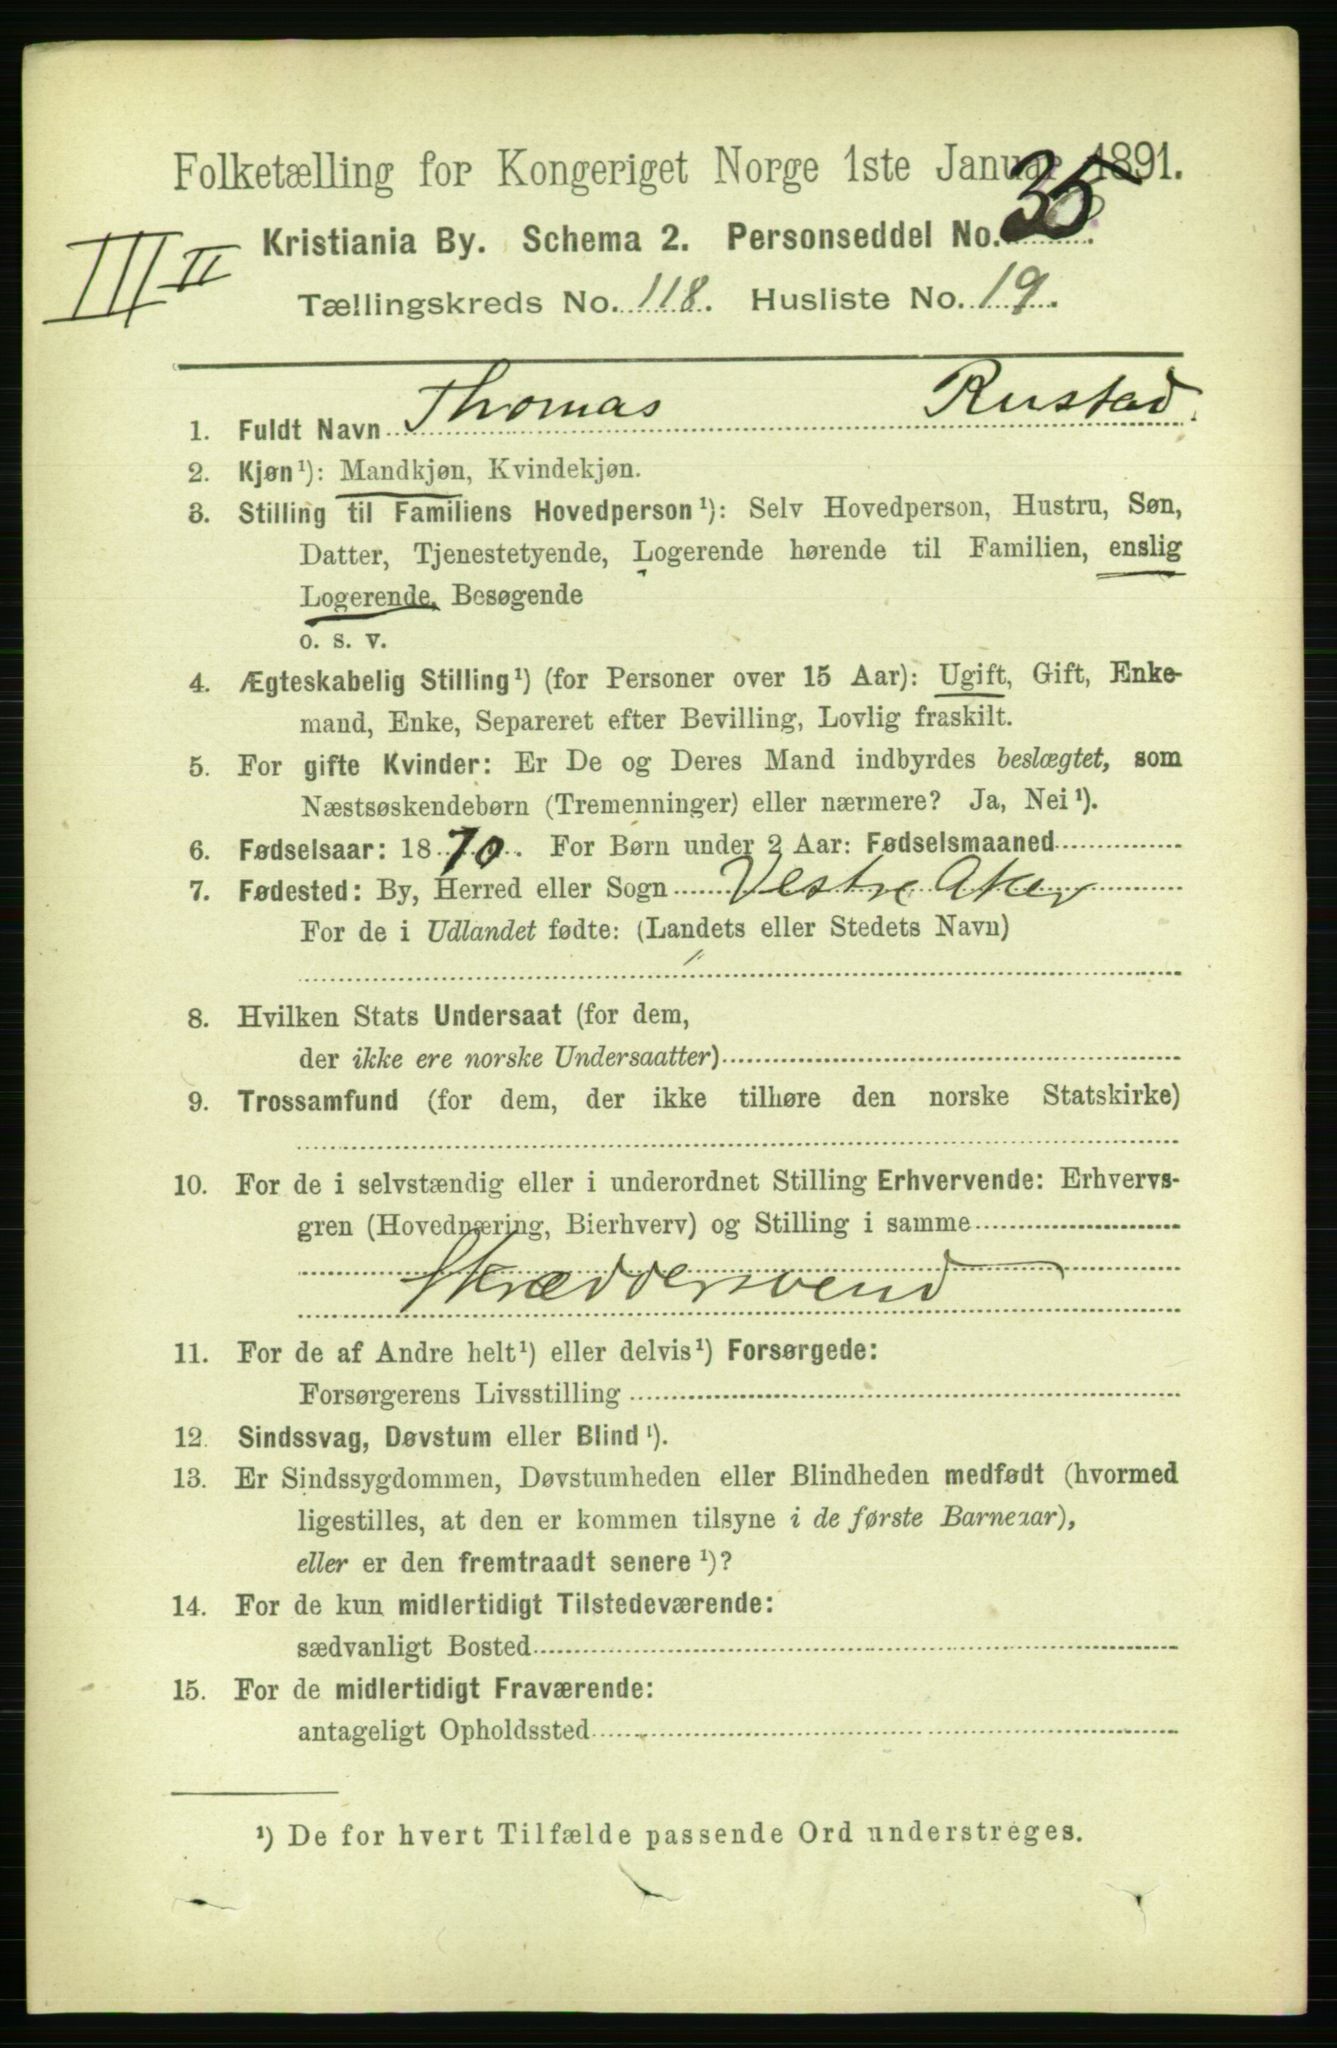 Folketælling for Kongeriget Norge 1ste Januar 1891.
Kristiania By. Schema 2. Personseddel No. 35.
III II
Tællingskreds No. 118. Husliste No. 19.
1. Fuldt Navn Thomas Rustad.
2. Kjøn ¹): Mandkjøn, Kvindekjøn.
3. Stilling til Familiens Hovedperson ¹): Selv Hovedperson, Hustru, Søn,
Datter, Tjenestetyende, Logerende hørende til Familien, enslig
Logerende, Besøgende
o. s. v.
4. Ægteskabelig Stilling ¹) (for Personer over 15 Aar): Ugift, Gift, Enke-
mand, Enke, Separeret efter Bevilling, Lovlig fraskilt.
5. For gifte Kvinder: Er De og Deres Mand indbyrdes beslægtet, som
Næstsøskendebørn (Tremenninger) eller nærmere? Ja, Nei ¹).
6. Fødselsaar: 1870. For Børn under 2 Aar: Fødselsmaaned
7. Fødested: By, Herred eller Sogn Vestre Aker
For de i Udlandet fødte: (Landets eller Stedets Navn)
8. Hvilken Stats Undersaat (for dem,
der ikke ere norske Undersaatter)
9. Trossamfund (for dem, der ikke tilhøre den norske Statskirke)
10. For de i selvstændig eller i underordnet Stilling Erhvervende: Erhvervs-
gren (Hovednæring, Bierhverv) og Stilling i samme
Skræddersvend
11. For de af Andre helt ¹) eller delvis ¹) Forsørgede:
Forsørgerens Livsstilling
12. Sindssvag, Døvstum eller Blind ¹).
13. Er Sindssygdommen, Døvstumheden eller Blindheden medfødt (hvormed
ligestilles, at den er kommen tilsyne i de første Barneaar),
eller er den fremtraadt senere ¹)?
14. For de kun midlertidigt Tilstedeværende:
sædvanligt Bosted
15. For de midlertidigt Fraværende:
antageligt Opholdssted
¹) De for hvert Tilfælde passende Ord understreges.